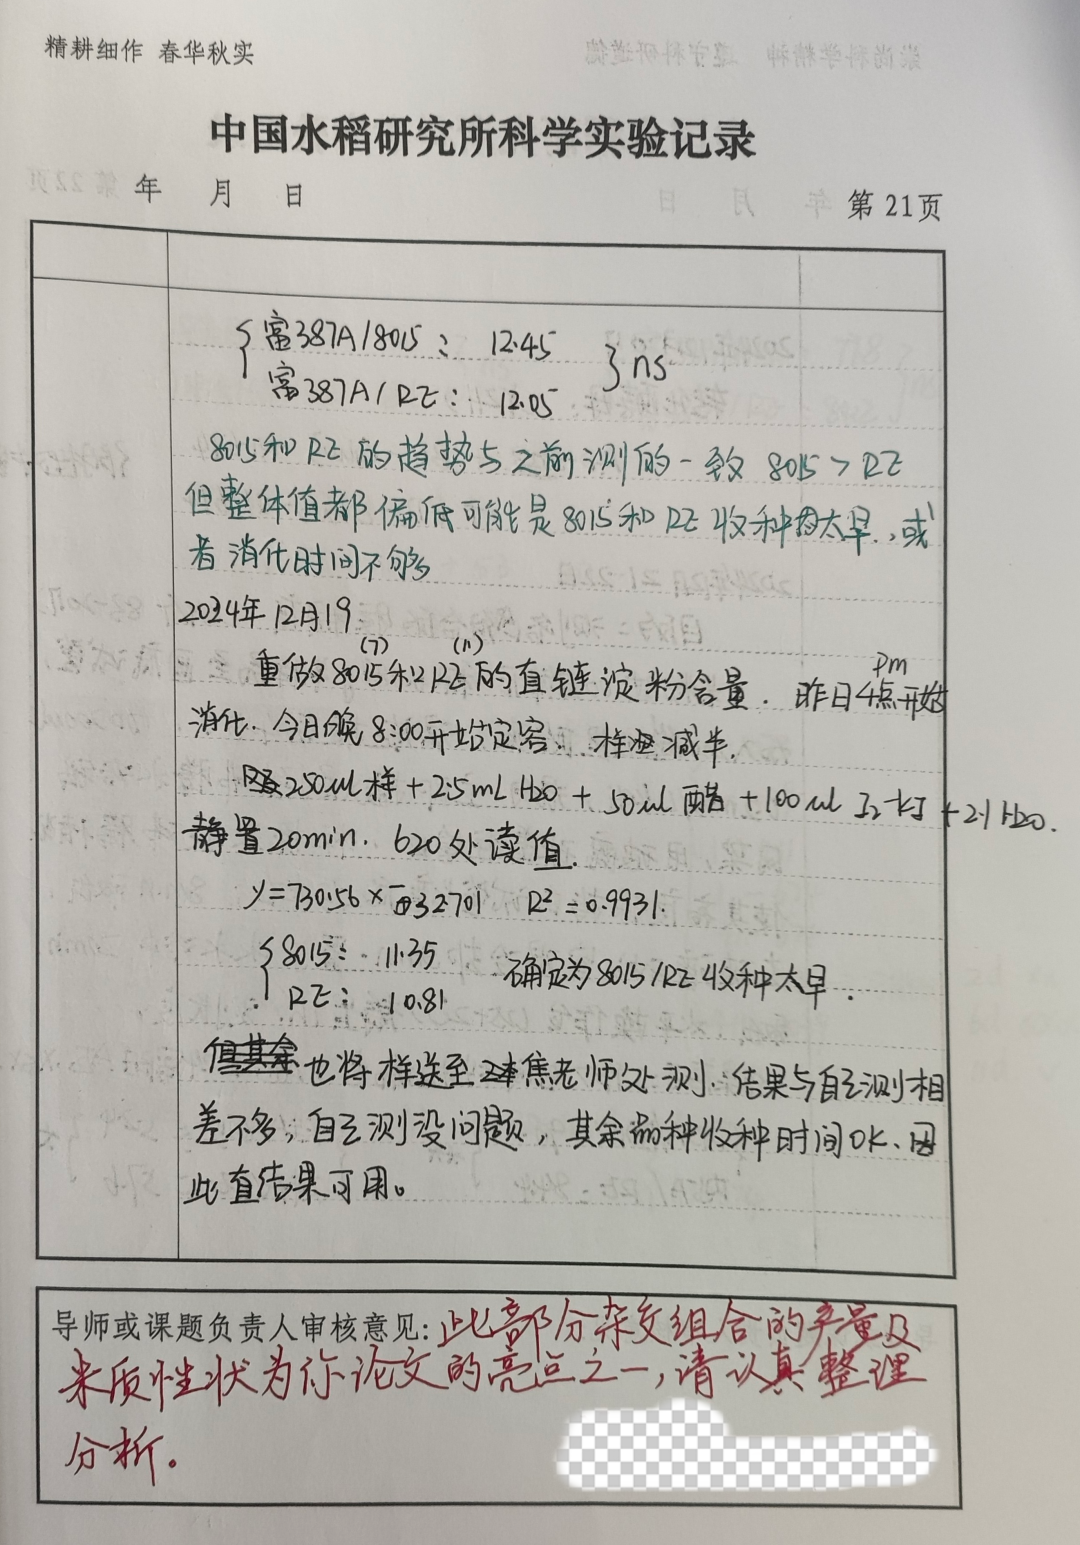 精耕细作 春华秋实
中国水稻研究所科学实验记录
年 月 日
第 21页
富387A/8015： 12.45
富387A/RZ： 12.05
} ns
8015和RZ的趋势与之前测的一致 8015 > RZ
但整体值都偏低可能是8015和RZ收种太早，或
者消化时间不够
2024年12月19
(7) (11)
重做8015和RZ的直链淀粉含量. 昨日4点pm开始
消化. 今日晚8:00开始定容. 样减半.
250ul样 + 2.5mL H2O + 50ul 醋 + 100ul I2-KI + 2.1 H2O.
静置20min. 620处读值.
R² = 0.9931.
8015： 11.35
RZ： 10.81
确定为8015/RZ收种太早.
也将样送至焦老师处测. 结果与自己测相
差不多，自己测没问题，其余品种收种时间OK. 因
此直结果可用。
导师或课题负责人审核意见：此部分杂交组合的产量及
米质性状为你论文的亮点之一，请认真整理
分析。